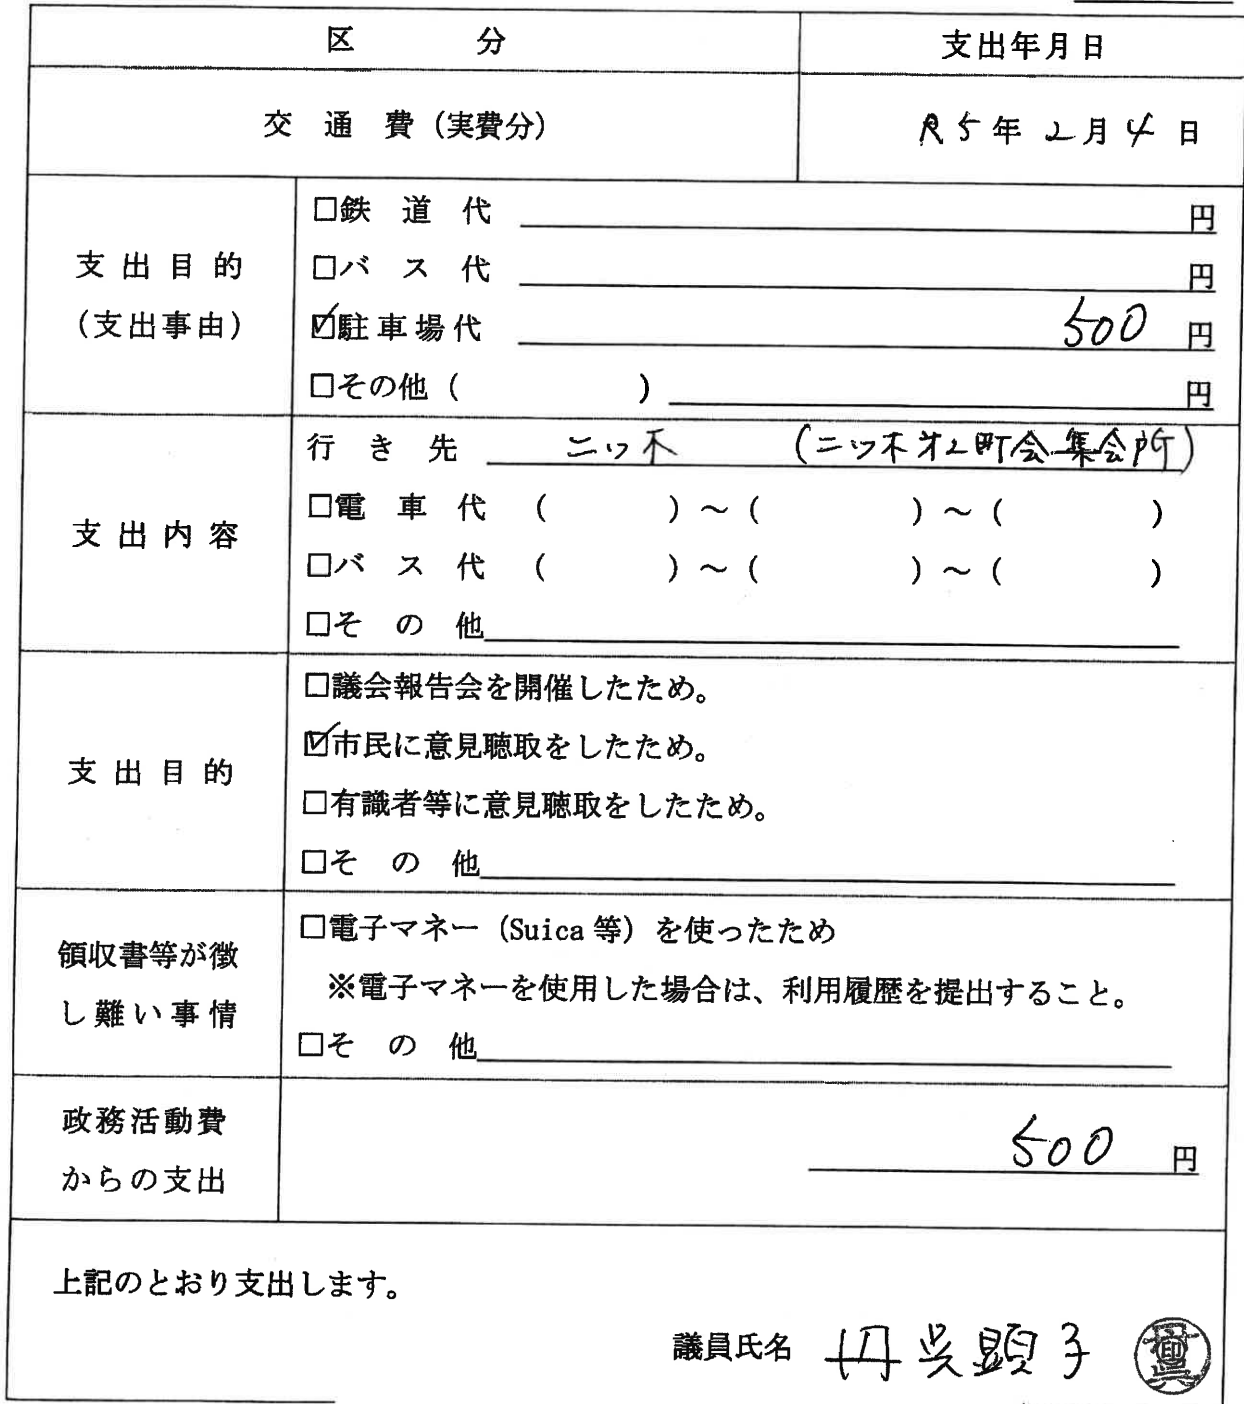 区 分 支出年月日
交 通 費（実費分） R5年 2月 4日
支出目的
（支出事由）
□鉄 道 代 円
□バ ス 代 円
☑駐車場代 500 円
□その他（ ） 円
支出内容
行 き 先 二ツ木 (二ツ木才2町会集会所)
□電 車 代 （ ）～（ ）～（ ）
□バ ス 代 （ ）～（ ）～（ ）
□そ の 他
支出目的
□議会報告会を開催したため。
☑市民に意見聴取をしたため。
□有識者等に意見聴取をしたため。
□そ の 他
領収書等が徴
し難い事情
□電子マネー（Suica等）を使ったため
※電子マネーを使用した場合は、利用履歴を提出すること。
□そ の 他
政務活動費
からの支出
500 円
上記のとおり支出します。
議員氏名 丹呉顕子